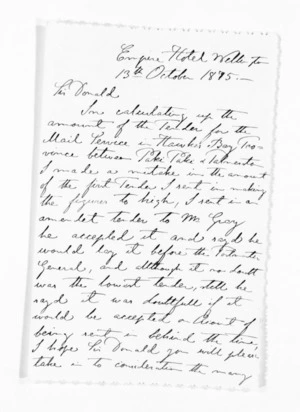 Empire Hotel Wellington
13th October 1875:—
Sir Donald
In calculating up the
amount of the Tender for the
Mail Service in Hawkes Bay Pro=
vence between Taki Taki &
I made a mistake in the amount
of the first Tender I sent in making
the figures to high, I sent in an
amendet tender to Mr Gray
he accepted it and sayd he
would lay it before the Post Master
General, and although it no doubt
was the lowest tender, still he
sayd it was doubtfull if it
would be accepted on account of
being sent in behind the time,
I hope Sir Donald you will please
take in to consideration the many